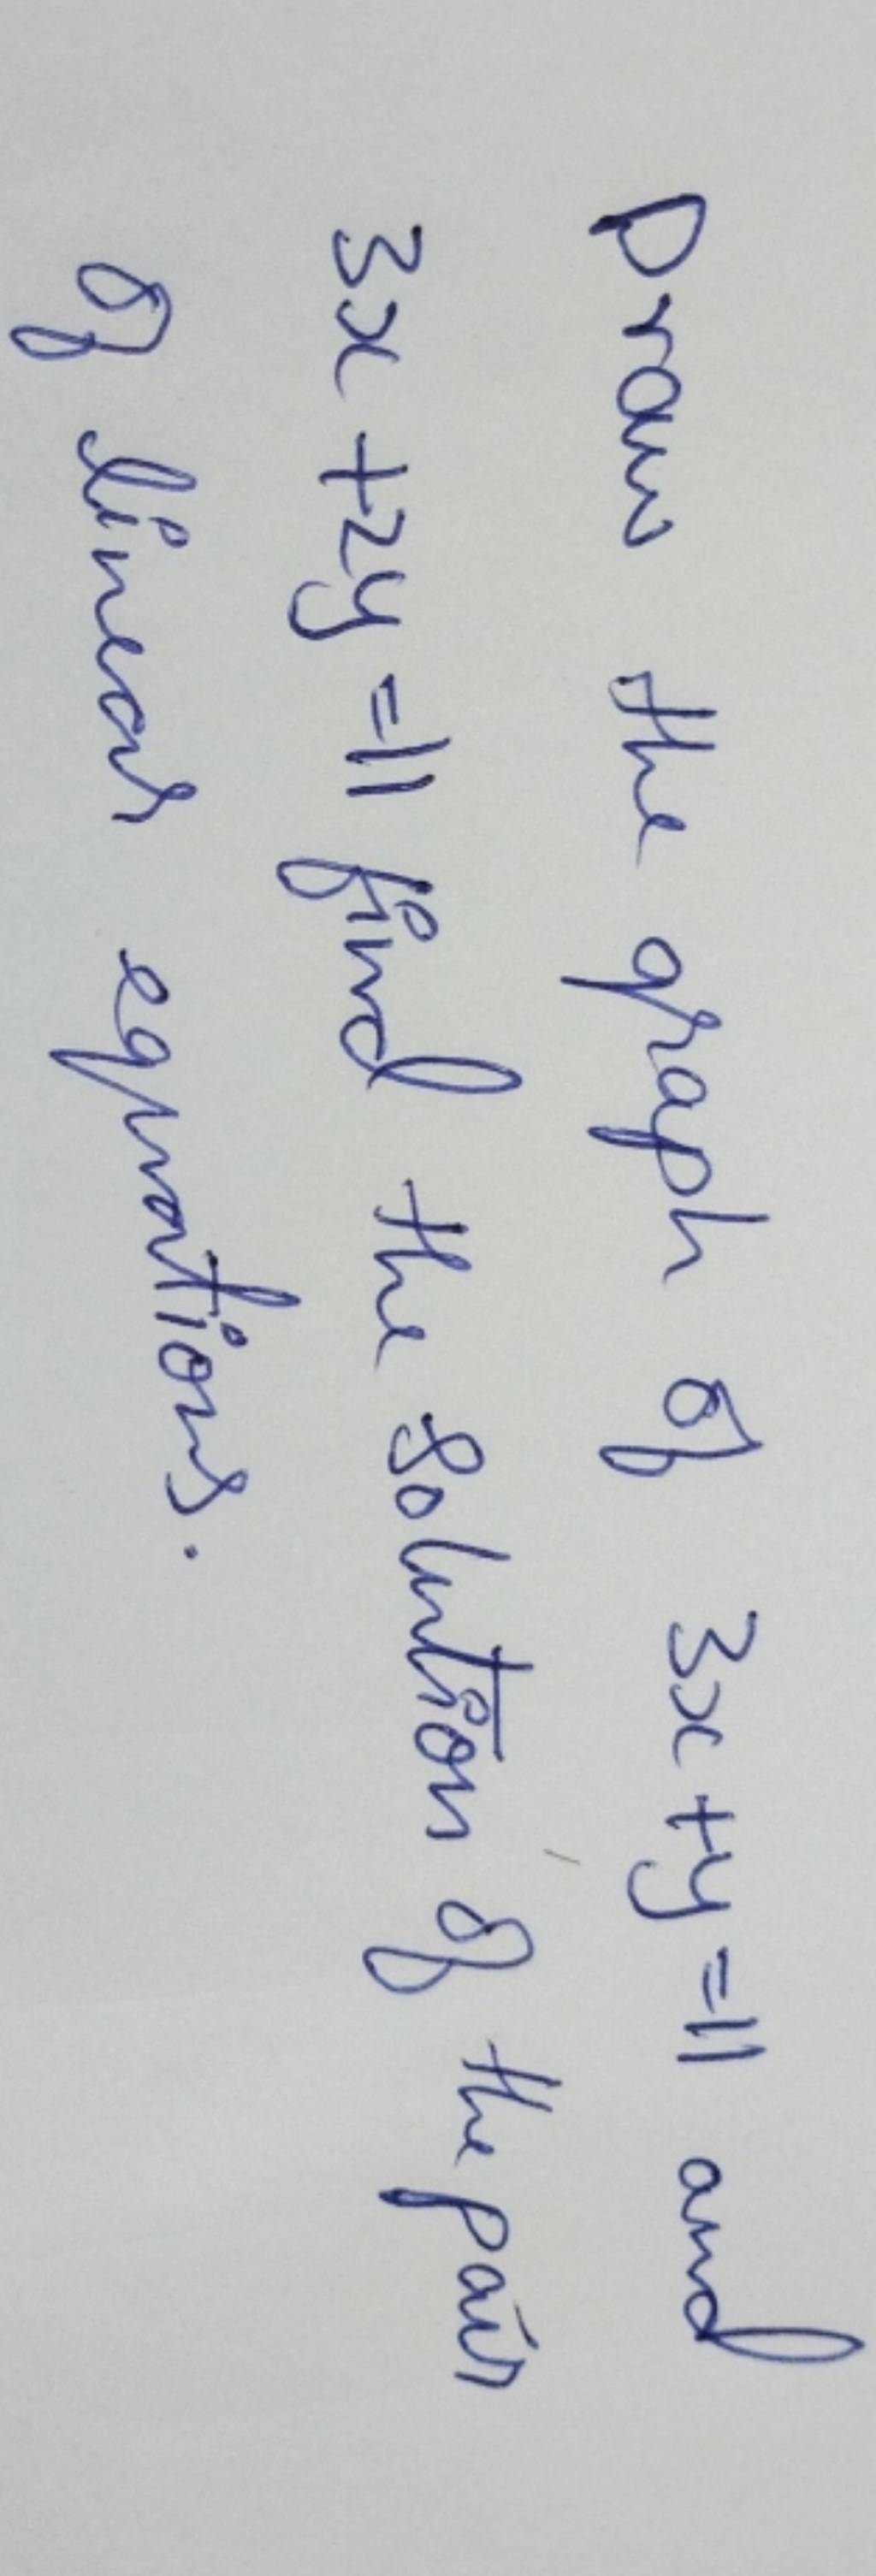 Draw the graph of 3x+y=11 and
3x+2y=11 find the solution of the pair
of linear equations.